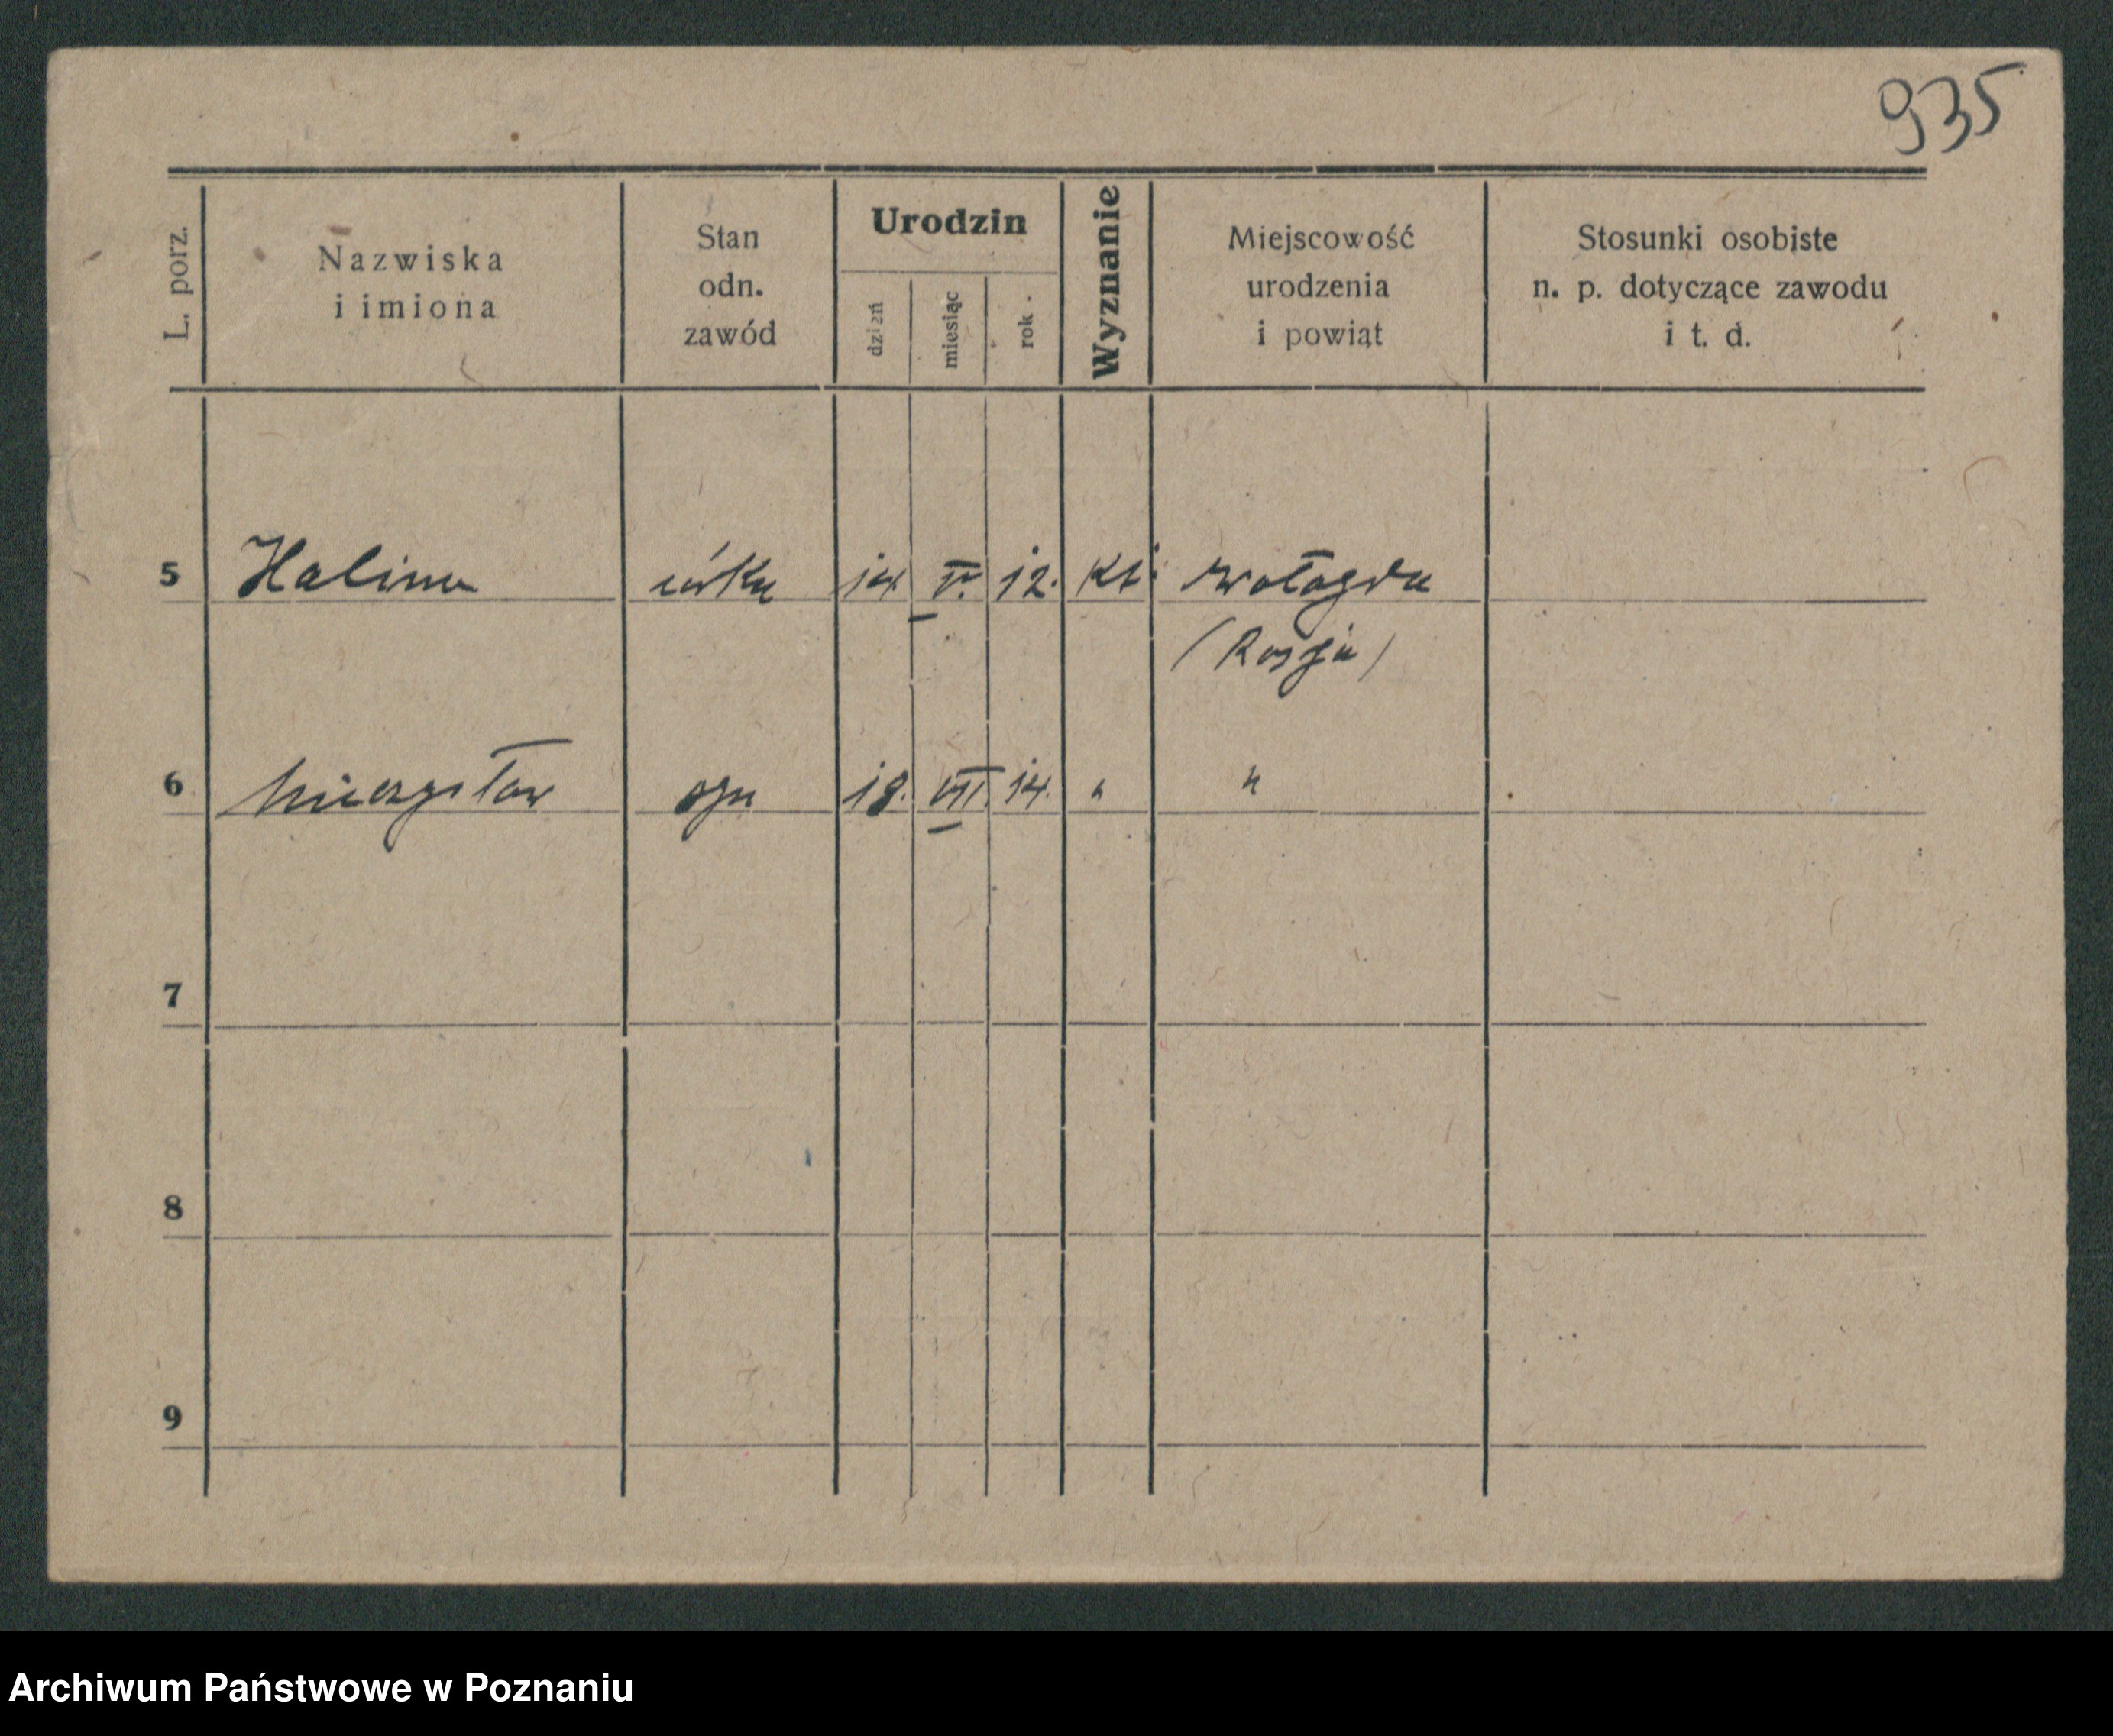 935
L. porz.
Nazwiska
i imiona
Stan
odn.
zawód
Urodzin
dzień
miesiąc
rok
Wyznanie
Miejscowość
urodzenia
i powiąt
Stosunki osobiste
n. p. dotyczące zawodu
i t. d.
5 Halina córka 14. V. 12. kt. Wołogda
(Rosja)
6 Mieczysław syn 18. VII. 14. " "
7
8
9
Archiwum Państwowe w Poznaniu